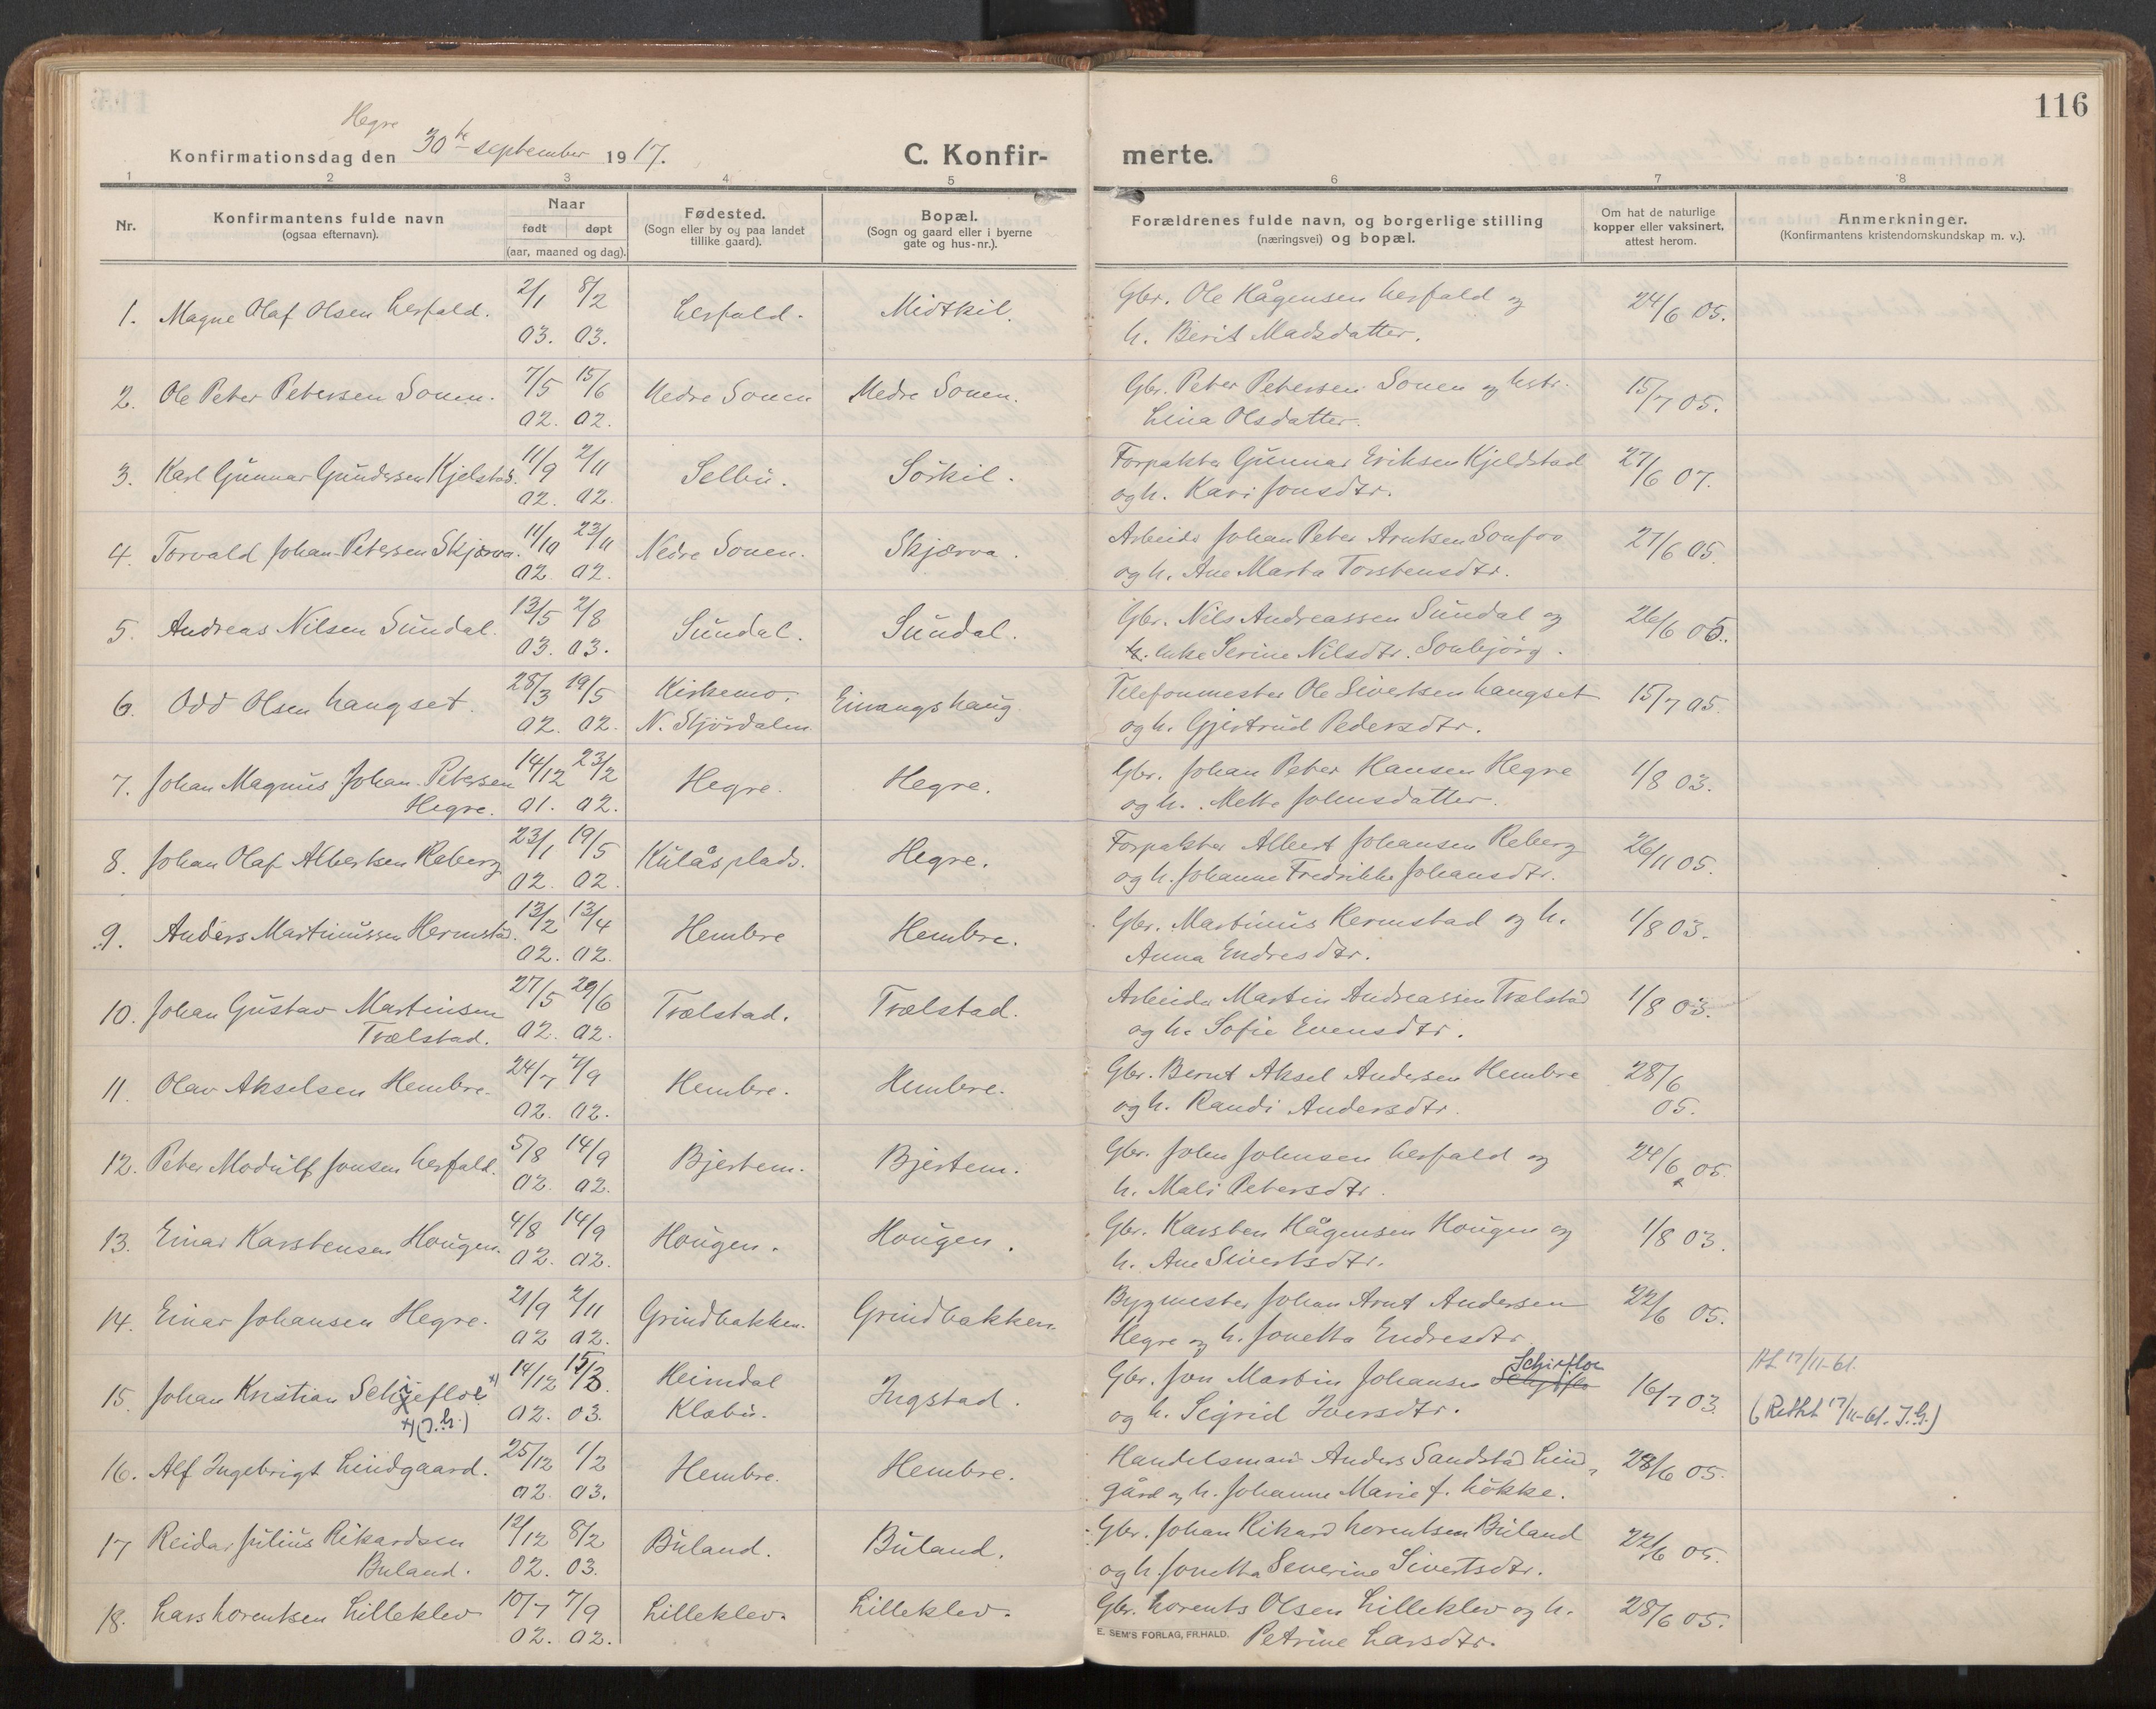 116
Hegre
Konfirmationsdag den 30te september 1917.
C. Konfir-
merte.
1 2 3 4 5 6 7 8
Nr.
Konfirmantens fulde navn
(ogsaa efternavn).
Naar
født døpt
(aar, maaned og dag).
Fødested.
(Sogn eller by og paa landet
tillike gaard).
Bopæl.
(Sogn og gaard eller i byerne
gate og hus-nr.).
Forældrenes fulde navn, og borgerlige stilling
(næringsvei) og bopæl.
Om hat de naturlige
kopper eller vaksinert,
attest herom.
Anmerkninger.
(Konfirmantens kristendomskundskap m. v.).
1. Magne Olaf Olsen Lerfald. 2/1 03. 8/2 03. Lerfald. Midtkil. Gbr. Ole Hågensen Lerfald og 24/6 05.
h. Berit Madsdatter.
2. Ole Peter Petersen Sonen. 7/5 02. 15/6 02. Nedre Sonen Nedre Sonen. Gbr. Peter Petersen Sonen og hstr. 15/7 05.
Lina Olsdatter.
3. Karl Gunnar Gundersen Kjelstad. 11/9 02. 2/11 02. Selbu. Sørkil. Forpakter Gunnar Eriksen Kjeldstad 27/6 07.
og h. Kari Jonsdtr.
4. Torvald Johan-Petersen Skjærva. 11/10 02. 23/11 02. Nedre Sonen. Skjærva. Arbeider Johan Peter Arntsen Sonfoo 27/6 05.
og h. Ane Marta Torstensdtr.
5. Andreas Nilsen Sundal. 13/5 03. 2/8 03. Sundal. Sundal. Gbr. Nils Andreassen Sundal og 26/6 05.
h. enke Serine Nilsdtr. Sonbjørg.
6. Odd Olsen Langset. 28/3 02. 19/5 02. Kirkemo, Einangshaug. Telefonmester Ole Sivertsen Langset 15/7 05.
N. Stjørdalen og h. Gjertrud Pedersdtr.
7. Johan Magnus Johan-Petersen 14/12 01. 23/2 02. Hegre. Hegre. Gbr. Johan Peter Hansen Hegre 1/8 03.
Hegre. og h. Mette Johnsdatter.
8. Johan Olaf Albertsen Reberg 23/1 02. 19/5 02. Kulåsplads. Hegre. Forpakter Albert Johansen Reberg 26/11 05.
og h. Johanne Fredrikke Johansdtr.
9. Anders Martinussen Hermstad. 13/2 02. 13/4 02. Hembre Hembre. Gbr. Martinus Hermstad og h. 1/8 03.
Anna Endresdtr.
10. Johan Gustav Martinsen 27/5 02. 29/6 02. Trælstad. Trælstad. Arbeider Martin Andreassen Trælstad 1/8 03.
Trælstad. og h. Sofie Evensdtr.
11. Olav Akselsen Hembre. 24/7 02. 7/9 02. Hembre. Hembre. Gbr. Bernt Aksel Andersen Hembre 28/6 05.
og h. Randi Andersdtr.
12. Peter Modulf Jonsen Lerfald. 5/8 02. 14/9 02. Bjertem. Bjertem. Gbr. John Johnsen Lerfald og 24/6 05.
h. Mali Petersdtr.
13. Einar Karstensen Hougen. 4/8 02. 14/9 02. Hougen. Hougen. Gbr. Karsten Hågensen Hougen og 1/8 03.
h. Ane Sivertsdtr.
14. Einar Johansen Hegre. 21/9 02 2/11 02. Grindbakken. Grindbakken. Bygmester Johan Arnt Andersen 22/6 05.
Hegre og h. Jonetta Endresdtr.
15. Johan Kristian Schjefloe x) 14/12 02. 15/3 03. Heimdal Ingstad. Gbr. Jon Martin Johansen Schjefloe 16/7 03.
x) (J.G.) Klæbu. og h. Sigrid Iversdtr. (Rettet 17/11-61. J.G.)
16. Alf Ingebrigt Lindgaard. 25/12 02. 1/2 03. Hembre. Hembre. Handelsmand Anders Sandstad Lind- 28/6 05.
gård og h. Johanne Marie f. Løkke.
17 Reidar Julius Rikardsen 12/12 02. 8/2 03. Buland. Buland. Gbr. Johan Rikard Lorentsen Buland 22/6 05.
Buland. og h. Jonetta Severine Sivertsdtr.
18. Lars Lorentsen Lilleklev 10/7 02. 7/9 02. Lilleklev. Lilleklev. Gbr. Lorents Olsen Lilleklev og h. 28/6 05.
Petrine Larsdtr.
E. SEM'S FORLAG, FR.HALD.